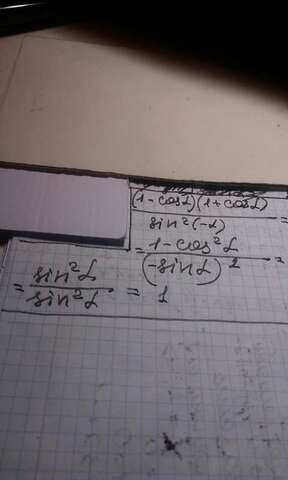 (1-cosα)(1+cosα) =
sin²(-α)
= 1-cos²α =
(-sinα)²
= sin²α = 1
sin²α